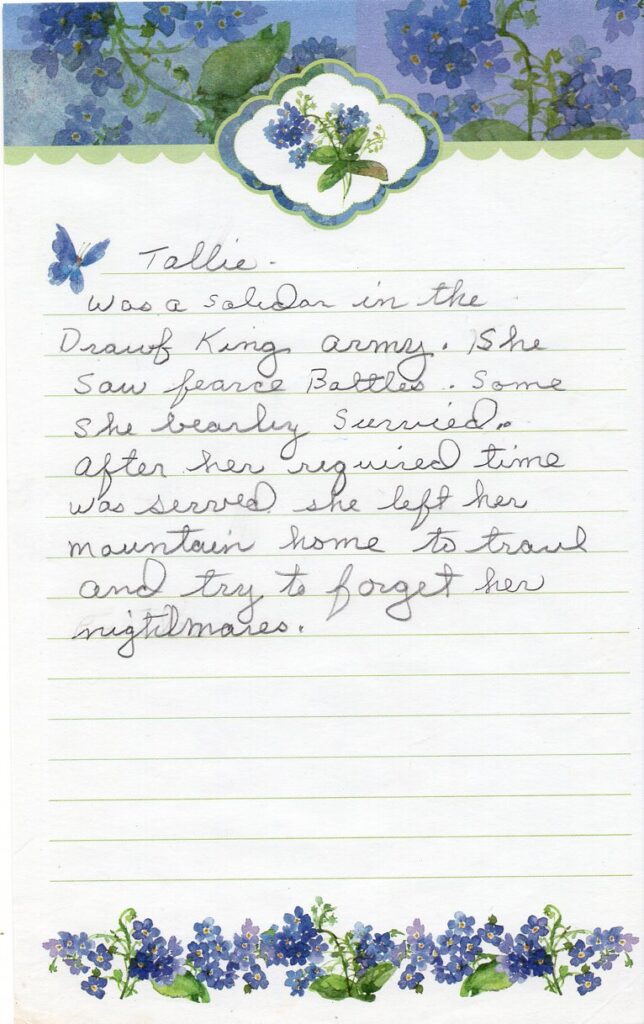 Tallie.
was a soledar in the
Drawf King army. She
saw fearce Battles. Some
she bearley Survied.
after her required time
was served she left her
mountain home to travl
and try to forget her
nightmares.